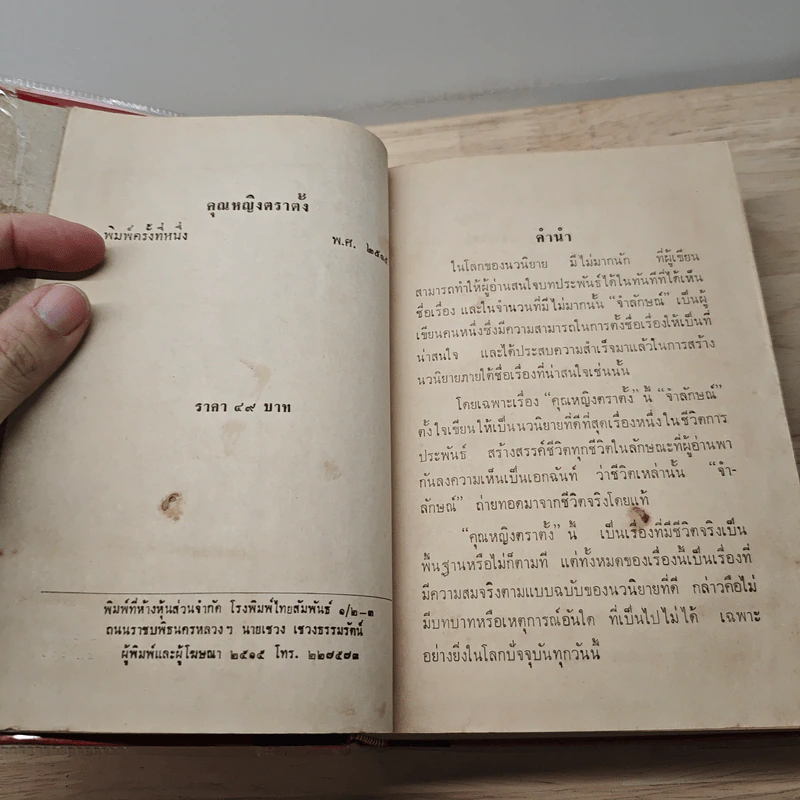 คุณหญิงตราตั้ง
พิมพ์ครั้งที่หนึ่ง พ.ศ. ๒๕๑๕
ราคา ๔๙ บาท
พิมพ์ที่ห้างหุ้นส่วนจำกัด โรงพิมพ์ไทยสัมพันธ์ ๑/๒-๓
ถนนราชบพิธนครหลวงฯ นายเชวง เชวงธรรมรัตน์
ผู้พิมพ์และผู้โฆษณา ๒๕๑๕ โทร. ๒๒๘๕๘๓
คำนำ
ในโลกของนวนิยาย มีไม่มากนัก ที่ผู้เขียน
สามารถทำให้ผู้อ่านสนใจบทประพันธ์ได้ในทันทีที่ได้เห็น
ชื่อเรื่อง และในจำนวนที่มีไม่มากนั้น “จำลักษณ์” เป็นผู้
เขียนคนหนึ่งซึ่งมีความสามารถในการตั้งชื่อเรื่องให้เป็นที่
น่าสนใจ และได้ประสบความสำเร็จมาแล้วในการสร้าง
นวนิยายภายใต้ชื่อเรื่องที่น่าสนใจเช่นนั้น
โดยเฉพาะเรื่อง “คุณหญิงตราตั้ง” นี้ “จำลักษณ์”
ตั้งใจเขียนให้เป็นนวนิยายที่ดีที่สุดเรื่องหนึ่งในชีวิตการ
ประพันธ์ สร้างสรรค์ชีวิตทุกชีวิตในลักษณะที่ผู้อ่านพา
กันลงความเห็นเป็นเอกฉันท์ ว่าชีวิตเหล่านั้น “จำ-
ลักษณ์” ถ่ายทอดมาจากชีวิตจริงโดยแท้
“คุณหญิงตราตั้ง” นี้ เป็นเรื่องที่มีชีวิตจริงเป็น
พื้นฐานหรือไม่ก็ตามที แต่ทั้งหมดของเรื่องนี้เป็นเรื่องที่
มีความสมจริงตามแบบฉบับของนวนิยายที่ดี กล่าวคือไม่
มีบทบาทหรือเหตุการณ์อันใด ที่เป็นไปไม่ได้ เฉพาะ
อย่างยิ่งในโลกปัจจุบันทุกวันนี้